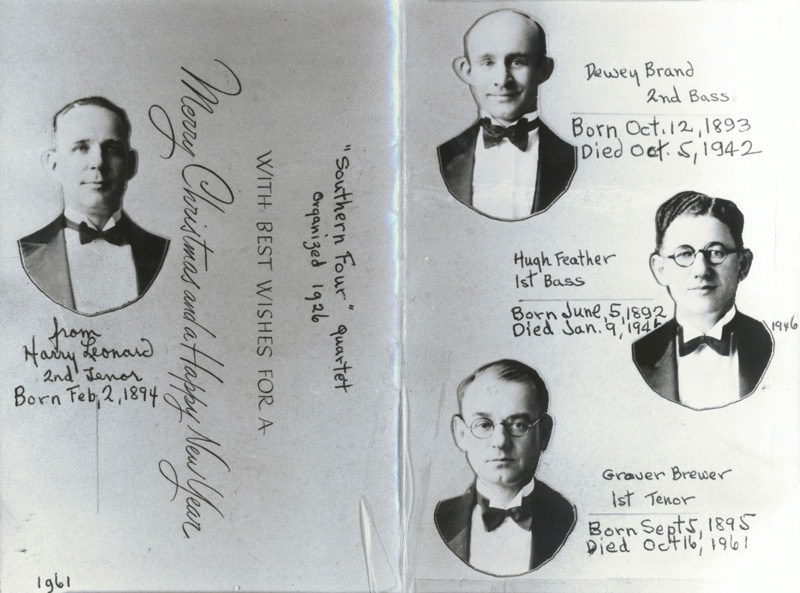 from
Harry Leonard
2nd Tenor
Born Feb, 2, 1894
1961
Merry Christmas and a Happy New Year
WITH BEST WISHES FOR A
"Southern Four" quartet
organized 1926
Dewey Brand
2nd Bass
Born Oct. 12, 1893
Died Oct. 5, 1942
Hugh Feather
1st Bass
Born June, 5, 1892
Died Jan. 9, 1946
1946
Grover Brewer
1st Tenor
Born Sept 5, 1895
Died Oct 16, 1961